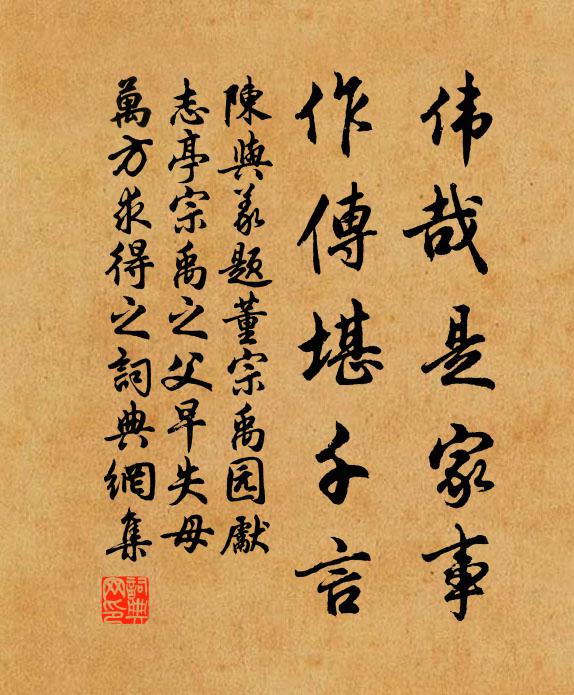 伟哉是家事
作傳堪千言
陳與義题董宗禹园獻
志亭宗禹之父早失母
萬方求得之詞典網集
詞典网印